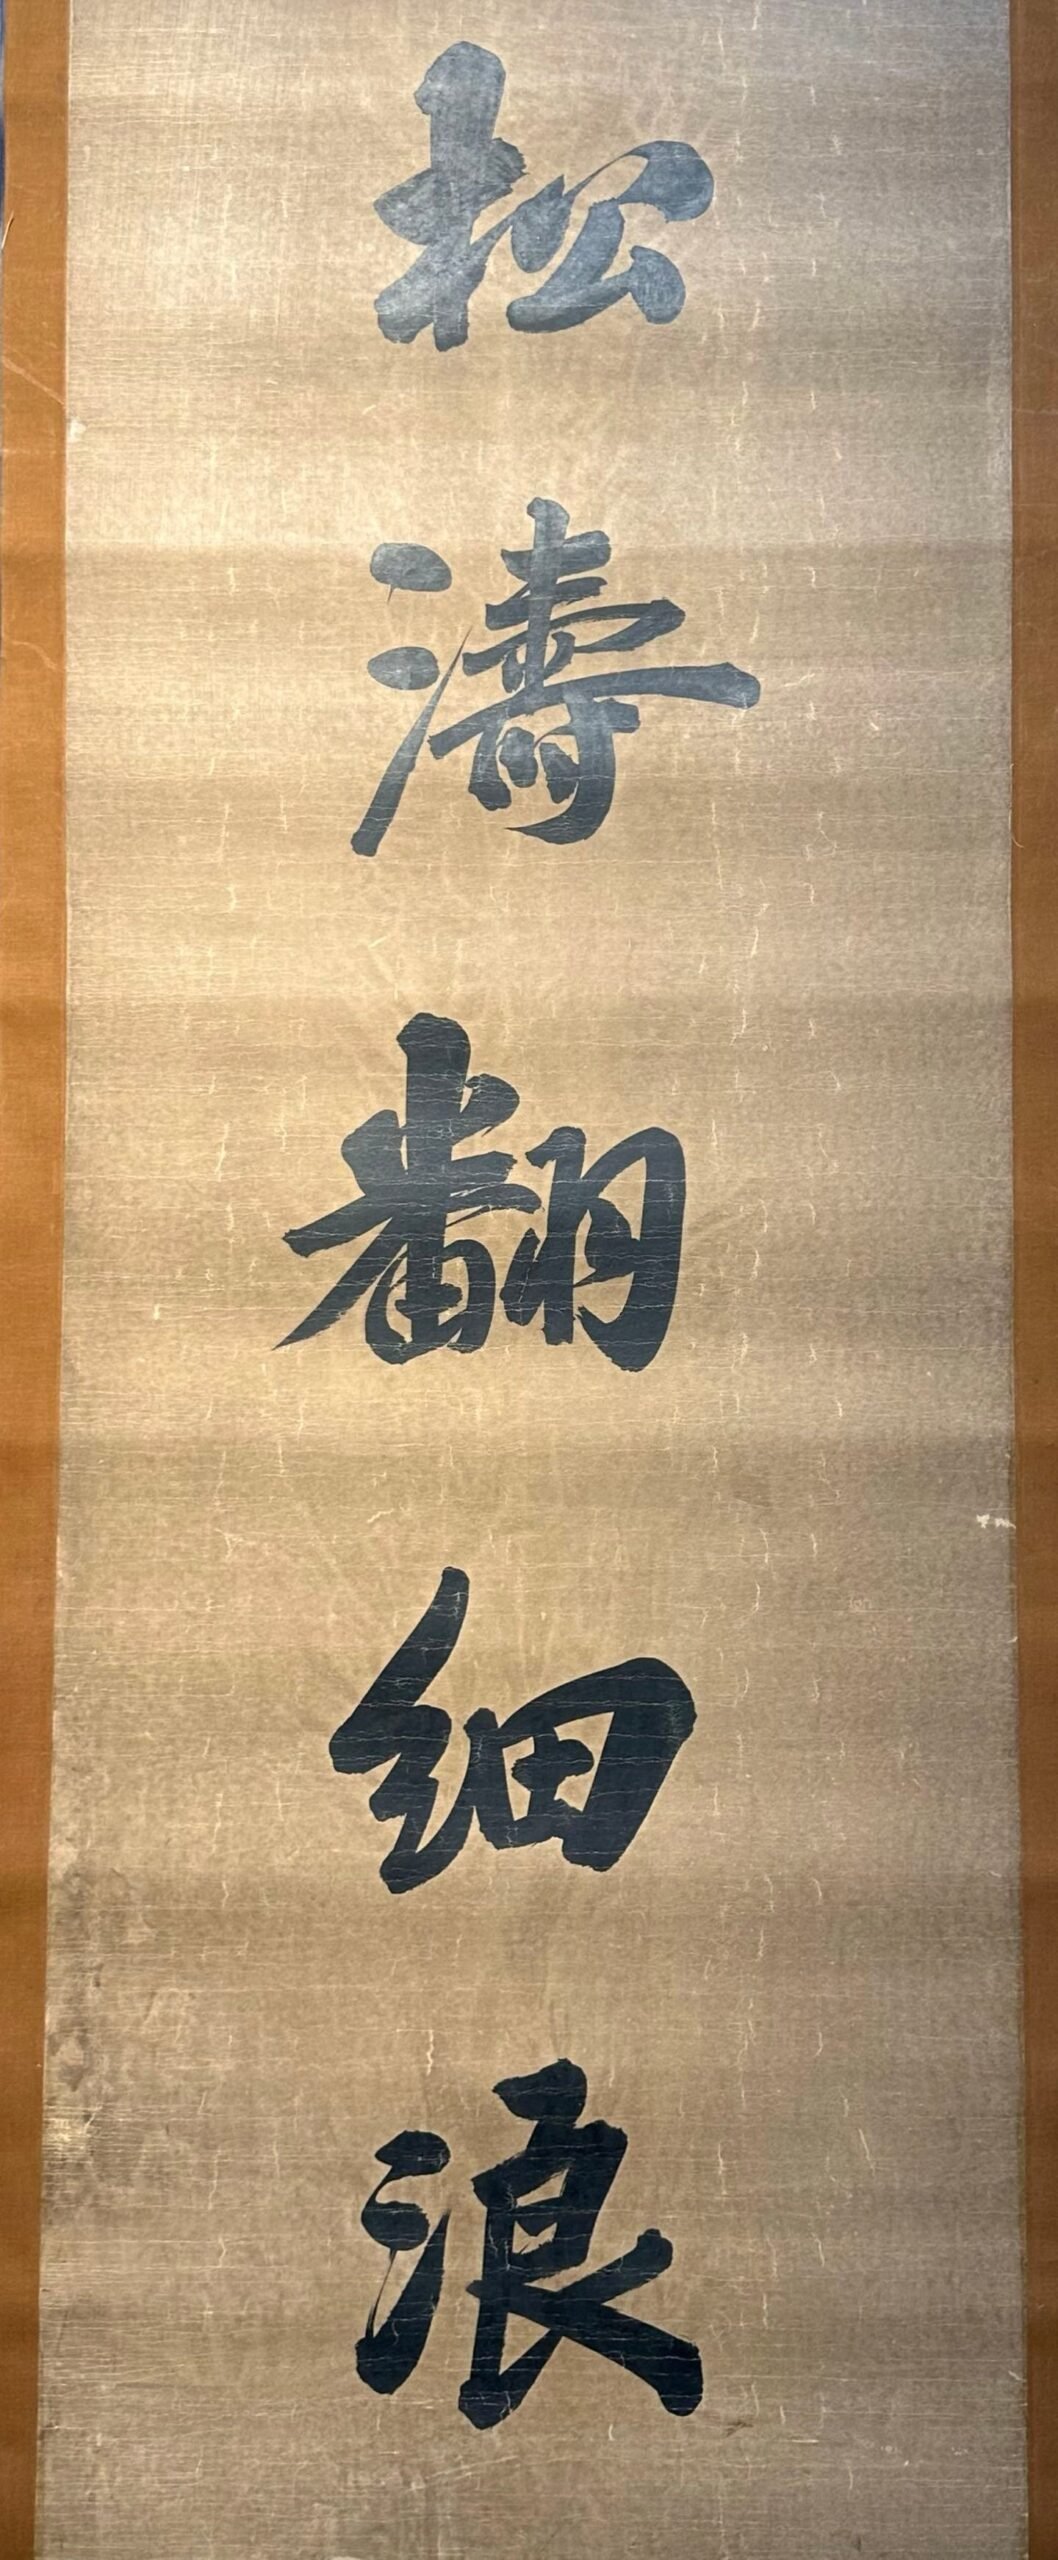 松濤翻細浪